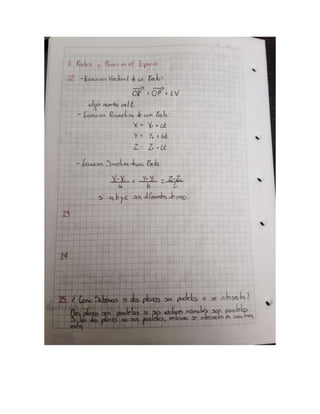 Rectas y Planos en el Espacio
22 - Ecuacion Vectorial de una Recta:
OR = OP + tV
algun numero real t
- Ecuacion Parametrica de una Recta:
X = X₁ + at
Y = Y₁ + bt
Z = Z₁ + Ct
- Ecuacion Simetrica de una Recta
X-X₁/a = Y-Y₁/b = Z-Z₁/C
si a, b y c son diferentes de cero.
23
24
25 ¿ Como Sabemos si dos planos son paralelos o se intersectan?
Dos planos son paralelos si sus vectores normales son paralelos.
Si los dos planos no son paralelos, entonces se intersectan en una linea
recta.